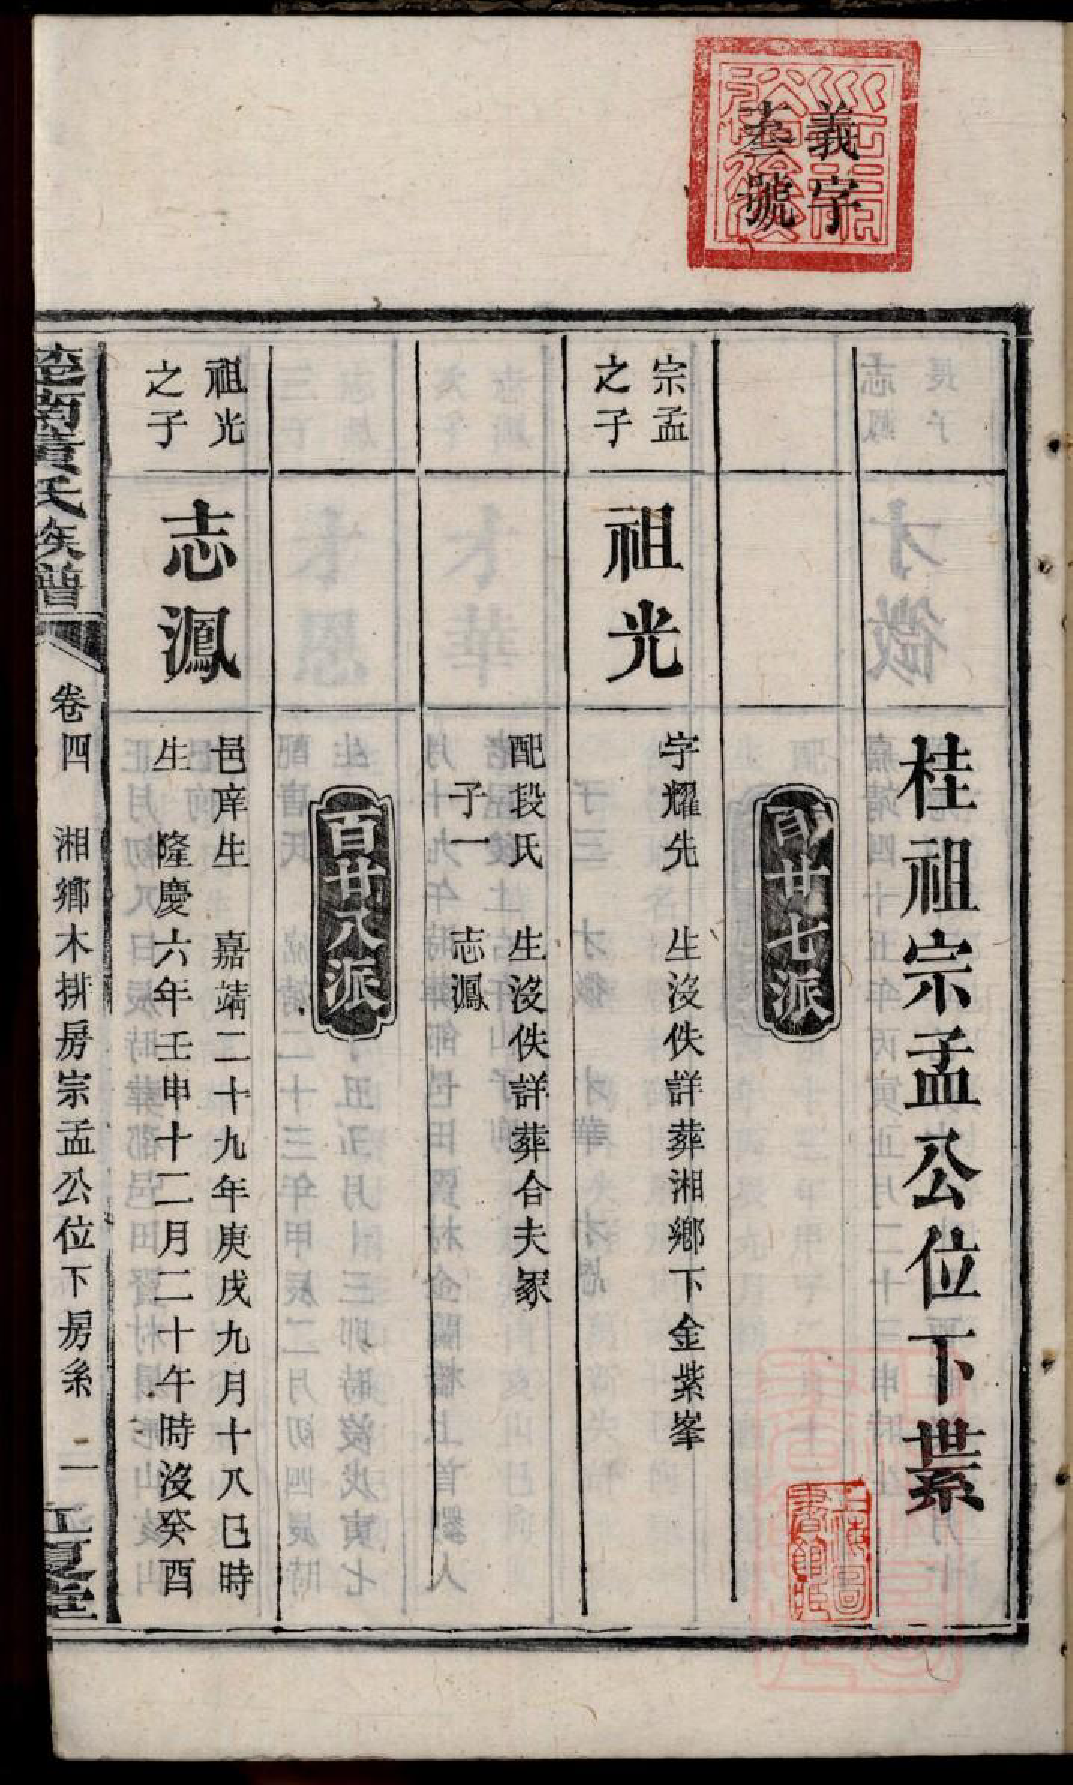 義字
叁號
桂祖宗孟公位下世系
百廿七派
宗孟
之子
祖光
字耀先 生沒佚詳葬湘鄉下金紫峯
配段氏 生沒佚詳葬合夫冢
子一 志鳳
百廿八派
祖光
之子
志鳳
邑庠生 嘉靖二十九年庚戌九月十八巳時
生 隆慶六年壬申十二月二十午時沒癸酉
楚南黃氏族譜
卷四 湘鄉木排房宗孟公位下房系 一
江夏堂
上海圖
書館藏